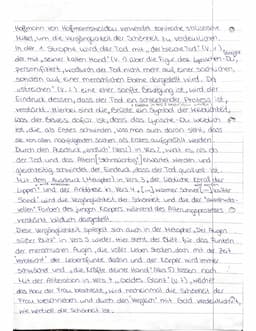 Hofmann von Hofmannswaldau verwendet zahlreiche stilistische
Mittel, um die Vergänglichkeit der Schönheit zu verdeutlichen.
In der 1. Strophe wird der Tod mit „der bleiche Tod" (V. 1),
der mit „seiner kalten Hand" (V. 1) über die Figur des Lyrischen-Du,
personifiziert, wodurch der Tod nicht mehr auf einer sachlichen,
sondern auf einer menschlichen Ebene dargestellt wird. Da
„streichen" (V. 2) eine eher sanfte Bewegung ist, wird der
Eindruck dessen, dass der Tod ein schleichender Prozess ist,
verstärkt. Hierbei sind die Brüste ein Symbol der Weiblichkeit,
was der Beweis dafür ist, dass das Lyrische-Du weiblich
ist, die als Erstes schwinden, was man auch daran sieht, dass
sie von allen Aspekten als Erstes aufgezählt werden.
Durch den Ausdruck „endlich" (V. 2) in Vers 2, wirkt es, als ob
der Tod und das Altern erwartet werden und
gleichzeitig schwindet der Eindruck, dass der Tod qualvoll ist.
Mit dem Ausdruck in Vers 3, „der Liebliche Corall der
Lippen" und der Antithese in Vers 4, „[...] warmer Schnee [...] kalter
Sand" wird der Vergänglichkeit der Schönheit und das der
Farben des jungen Körpers während des Alterungsprozesses
verstärkt bildlich dargestellt.
Diese Vergänglichkeit spiegelt sich auch in der Metapher „Der Augen
süßer Blitz" in Vers 5 wieder. Hier steht der Blitz für das Funkeln
der menschlichen Augen, die voller Leben strahlen, doch mit der Zeit
der Lebensfunke darin und der Körper wird immer
schwächer und „die Kräfte deiner Hand" (Vers 5) lassen nach.
Mit der Alliteration in Vers „beides Glantz" (V. 7), welches
das Haar der Frau beschreibt, wird nocheinmal die Schönheit der
Frau beschrieben und durch den Vergleich mit Gold verdeutlicht,
wie wertvoll die Schönheit ist.